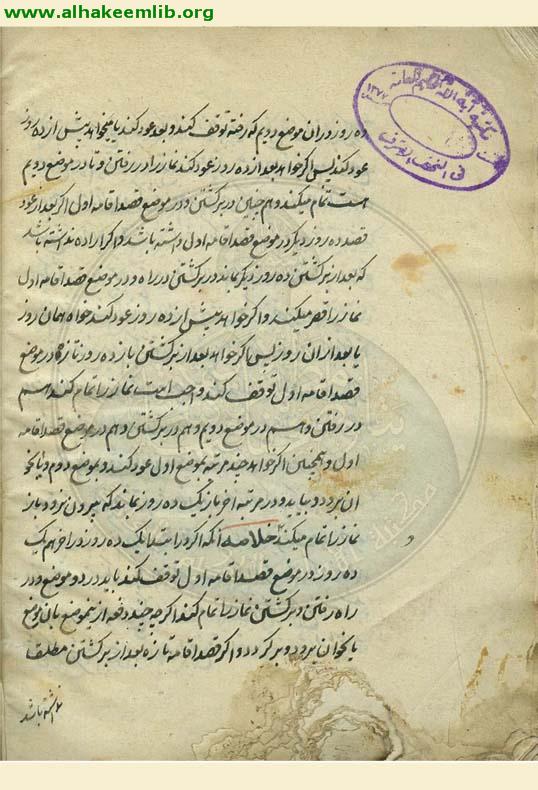 www.alhakeemlib.org
ده روز در ان موضع دویم که رفته توقف کند و بعد عود کند یا میخواهد پیش از ده روز
عود کند پس اگر خواهد بعد از ده روز عود کند نماز را در رفتن و تا در موضع دویم
است تمام میکند و هم چنین در برکشتن و در موضع قصد اقامه اول اگر بعد از عود
قصد ده روز دیگر در موضع قصد اقامه اول داشته باشد و اگر اراده نداشته باشد
که بعد از برکشتن ده روز دیگر بماند در برکشتن در راه و در موضع قصد اقامه اول
نماز را قصر میکند و اگر خواهد پیش از ده روز عود کند خواه همان روز
یا بعد از ان روز پس اگر خواهد بعد از برکشتن باز ده روز تازه در موضع
قصد اقامه اول توقف کند واجب است نماز را تمام کند هم
در رفتن و هم در موضع دویم و هم در برکشتن و هم در موضع قصد اقامه
اول و همچنین اگر خواهد چند مرتبه بموضع اول عود کند و بموضع دوم یا نحو
ان برود و بیاید و در مرتبه اخر باز یک ده روز بماند که بیرون نرود باز
نماز را تمام میکند خلاصه انکه اگر در ابتدا یک ده روز و در اخر هم یک
ده روز در موضع قصد اقامه اول توقف کند باید در دو موضع و در
راه رفتن و برکشتن نماز را تمام کند اگر چه چند دفعه از این موضع بان موضع
یا نحو ان برود و برکردد و اگر قصد اقامه تازه بعد از برکشتن مطلقا
نداشته باشد
مكتبة آية الله الحكيم العامة
في النجف الاشرف